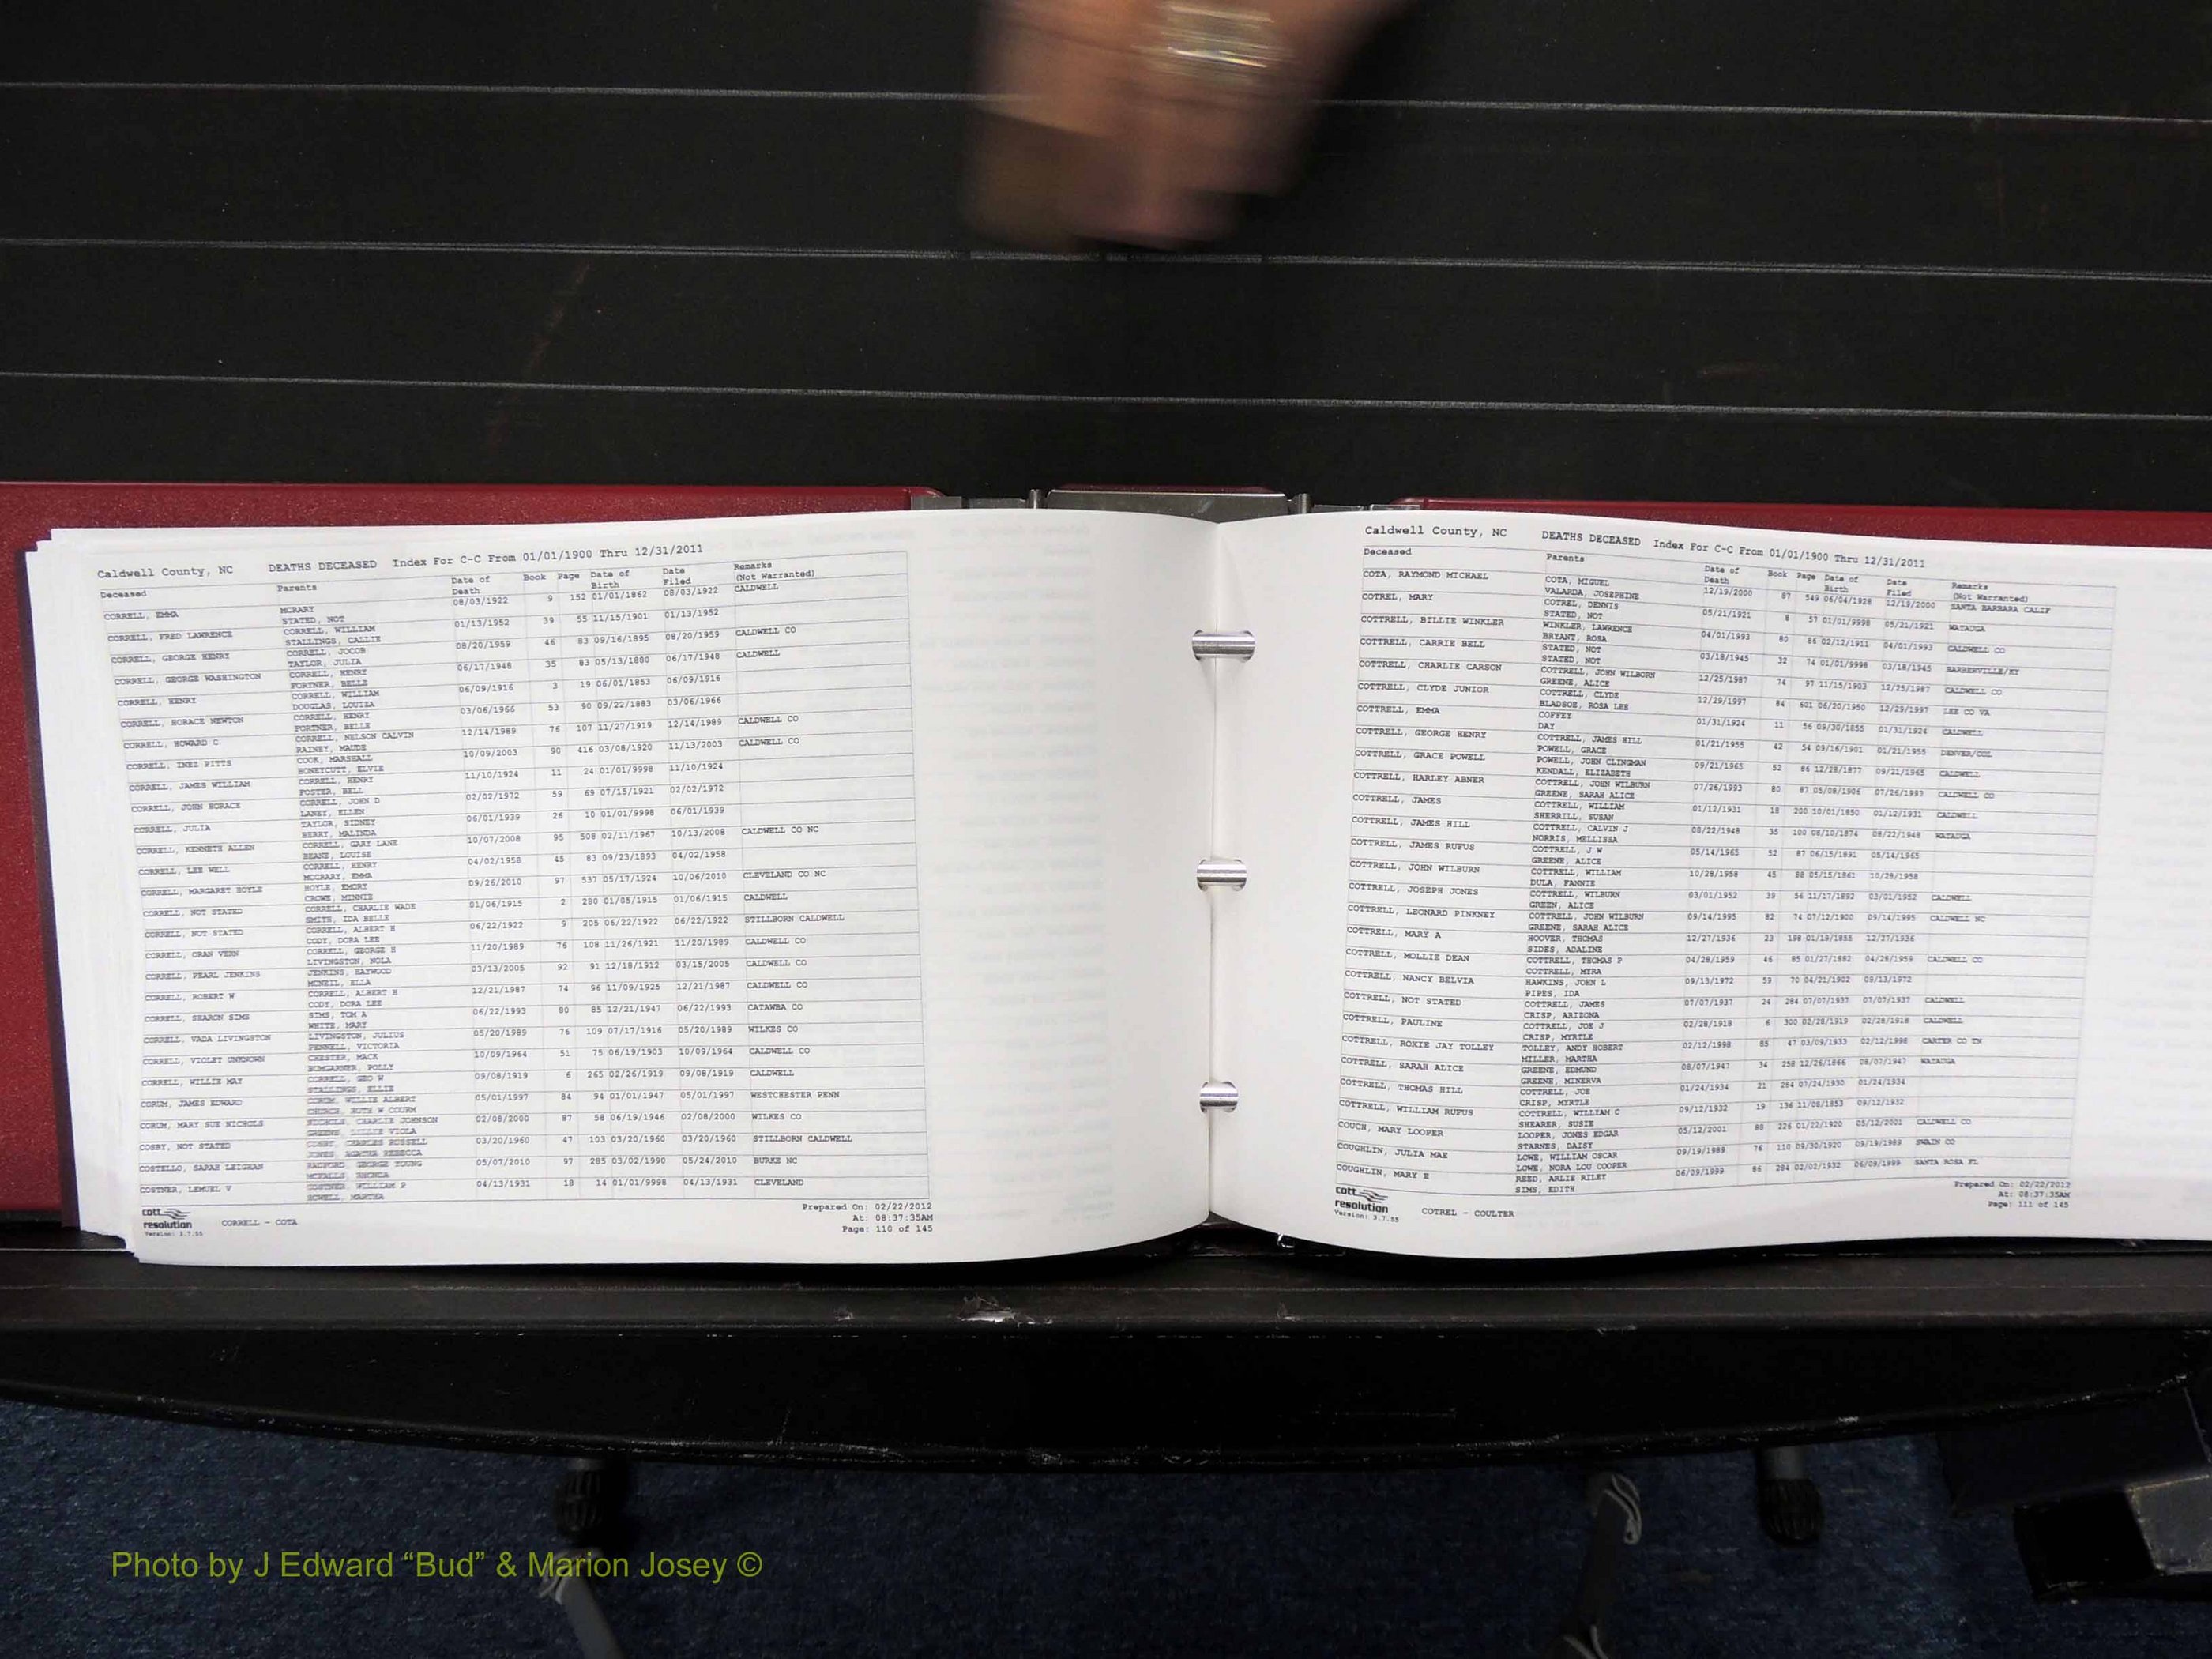 Caldwell County, NC DEATHS DECEASED Index For C-C From 01/01/1900 Thru 12/31/2011
Deceased Parents Date of Death Book Page Date of Birth Date Filed Remarks (Not Warranted)
CORRELL, EMMA MCRARY 08/03/1922 9 152 01/01/1862 08/03/1922 CALDWELL
STATED, NOT
CORRELL, FRED LAWRENCE CORRELL, WILLIAM 01/13/1952 39 55 11/15/1901 01/13/1952
STALLINGS, CALLIE
CORRELL, GEORGE HENRY CORRELL, JOCOB 08/20/1959 46 83 09/16/1895 08/20/1959 CALDWELL CO
TAYLOR, JULIA
CORRELL, GEORGE WASHINGTON CORRELL, HENRY 06/17/1948 35 83 05/13/1880 06/17/1948 CALDWELL
FORTNER, BELLE
CORRELL, HENRY CORRELL, WILLIAM 06/09/1916 3 19 06/01/1853 06/09/1916
DOUGLAS, LOUIZA
CORRELL, HORACE NEWTON CORRELL, HENRY 03/06/1966 53 90 09/22/1883 03/06/1966
FORTNER, BELLE
CORRELL, HOWARD C CORRELL, NELSON CALVIN 12/14/1989 76 107 11/27/1919 12/14/1989 CALDWELL CO
RAINEY, MAUDE
CORRELL, INEZ PITTS COOK, MARSHALL 10/09/2003 90 416 03/08/1920 11/13/2003 CALDWELL CO
HONEYCUTT, ELVIE
CORRELL, JAMES WILLIAM CORRELL, HENRY 11/10/1924 11 24 01/01/9998 11/10/1924
FOSTER, BELL
CORRELL, JOHN HORACE CORRELL, JOHN D 02/02/1972 59 69 07/15/1921 02/02/1972
LANEY, ELLEN
CORRELL, JULIA TAYLOR, SIDNEY 06/01/1939 26 10 01/01/9998 06/01/1939
BERRY, MALINDA
CORRELL, KENNETH ALLEN CORRELL, GARY LANE 10/07/2008 95 508 02/11/1967 10/13/2008 CALDWELL CO NC
BEANE, LOUISE
CORRELL, LEE WELL CORRELL, HENRY 04/02/1958 45 83 09/23/1893 04/02/1958
MCCRARY, EMMA
CORRELL, MARGARET HOYLE HOYLE, EMORY 09/26/2010 97 537 05/17/1924 10/06/2010 CLEVELAND CO NC
CROWE, MINNIE
CORRELL, NOT STATED CORRELL, CHARLIE WADE 01/06/1915 2 280 01/05/1915 01/06/1915 CALDWELL
SMITH, IDA BELLE
CORRELL, NOT STATED CORRELL, ALBERT H 06/22/1922 9 205 06/22/1922 06/22/1922 STILLBORN CALDWELL
CODY, DORA LEE
CORRELL, ORAN VERN CORRELL, GEORGE H 11/20/1989 76 108 11/26/1921 11/20/1989 CALDWELL CO
LIVINGSTON, NOLA
CORRELL, PEARL JENKINS JENKINS, HAYWOOD 03/13/2005 92 91 12/18/1912 03/15/2005 CALDWELL CO
MCNEIL, ELLA
CORRELL, ROBERT W CORRELL, ALBERT H 12/21/1987 74 96 11/09/1925 12/21/1987 CALDWELL CO
CODY, DORA LEE
CORRELL, SHARON SIMS SIMS, TOM A 06/22/1993 80 85 12/21/1947 06/22/1993 CATAWBA CO
WHITE, MARY
CORRELL, VADA LIVINGSTON LIVINGSTON, JULIUS 05/20/1989 76 109 07/17/1916 05/20/1989 WILKES CO
PENNELL, VICTORIA
CORRELL, VIOLET UNKNOWN CHESTER, MACK 10/09/1964 51 75 06/19/1903 10/09/1964 CALDWELL CO
BUMGARNER, POLLY
CORRELL, WILLIE MAY CORRELL, GEO W 09/08/1919 6 265 02/26/1919 09/08/1919 CALDWELL
STALLINGS, ELLIE
CORUM, JAMES EDWARD CORUM, WILLIE ALBERT 05/01/1997 84 94 01/01/1947 05/01/1997 WESTCHESTER PENN
CHURCH, RUTH W COURM
CORUM, MARY SUE NICHOLS NICHOLS, CHARLIE JOHNSON 02/08/2000 87 58 06/19/1946 02/08/2000 WILKES CO
GREENE, LILLIE VIOLA
COSBY, NOT STATED COSBY, CHARLES RUSSELL 03/20/1960 47 103 03/20/1960 03/20/1960 STILLBORN CALDWELL
JONES, AGATHA REBECCA
COSTELLO, SARAH LEIGHAN RADFORD, GEORGE YOUNG 05/07/2010 97 285 03/02/1990 05/24/2010 BURKE NC
MCFALLS, RHONDA
COSTNER, LEMUEL V COSTNER, WILLIAM P 04/13/1931 18 14 01/01/9998 04/13/1931 CLEVELAND
HOWELL, MARTHA
cott resolution Version: 3.7.55
CORRELL - COTA
Prepared On: 02/22/2012
At: 08:37:35AM
Page: 110 of 145
Caldwell County, NC DEATHS DECEASED Index For C-C From 01/01/1900 Thru 12/31/2011
Deceased Parents Date of Death Book Page Date of Birth Date Filed Remarks (Not Warranted)
COTA, RAYMOND MICHAEL COTA, MIGUEL 12/19/2000 87 549 06/04/1928 12/19/2000 SANTA BARBARA CALIF
VALARDA, JOSEPHINE
COTREL, MARY COTREL, DENNIS 05/21/1921 8 57 01/01/9998 05/21/1921 WATAUGA
STATED, NOT
COTTRELL, BILLIE WINKLER WINKLER, LAWRENCE 04/01/1993 80 86 02/12/1911 04/01/1993 CALDWELL CO
BRYANT, ROSA
COTTRELL, CARRIE BELL STATED, NOT 03/18/1945 32 74 01/01/9998 03/18/1945 BARBERVILLE/KY
STATED, NOT
COTTRELL, CHARLIE CARSON COTTRELL, JOHN WILBORN 12/25/1987 74 97 11/15/1903 12/25/1987 CALDWELL CO
GREENE, ALICE
COTTRELL, CLYDE JUNIOR COTTRELL, CLYDE 12/29/1997 84 601 06/20/1950 12/29/1997 LEE CO VA
BLADSOE, ROSA LEE
COTTRELL, EMMA COFFEY 01/31/1924 11 56 09/30/1855 01/31/1924 CALDWELL
DAY
COTTRELL, GEORGE HENRY COTTRELL, JAMES HILL 01/21/1955 42 54 09/16/1901 01/21/1955 DENVER/COL
POWELL, GRACE
COTTRELL, GRACE POWELL POWELL, JOHN CLINGMAN 09/21/1965 52 86 12/28/1877 09/21/1965 CALDWELL
KENDALL, ELIZABETH
COTTRELL, HARLEY ABNER COTTRELL, JOHN WILBURN 07/26/1993 80 87 05/08/1906 07/26/1993 CALDWELL CO
GREENE, SARAH ALICE
COTTRELL, JAMES COTTRELL, WILLIAM 01/12/1931 18 200 10/01/1850 01/12/1931 CALDWELL
SHERRILL, SUSAN
COTTRELL, JAMES HILL COTTRELL, CALVIN J 08/22/1948 35 100 08/10/1874 08/22/1948 WATAUGA
NORRIS, MELLISSA
COTTRELL, JAMES RUFUS COTTRELL, J W 05/14/1965 52 87 06/15/1891 05/14/1965
GREENE, ALICE
COTTRELL, JOHN WILBURN COTTRELL, WILLIAM 10/28/1958 45 88 05/15/1861 10/28/1958
DULA, FANNIE
COTTRELL, JOSEPH JONES COTTRELL, WILBURN 03/01/1952 39 56 11/17/1892 03/01/1952 CALDWELL
GREEN, ALICE
COTTRELL, LEONARD PINKNEY COTTRELL, JOHN WILBURN 09/14/1995 82 74 07/12/1900 09/14/1995 CALDWELL NC
GREENE, SARAH ALICE
COTTRELL, MARY A HOOVER, THOMAS 12/27/1936 23 198 01/19/1855 12/27/1936
SIDES, ADALINE
COTTRELL, MOLLIE DEAN COTTRELL, THOMAS P 04/28/1959 46 85 01/27/1882 04/28/1959 CALDWELL CO
COTTRELL, MYRA
COTTRELL, NANCY BELVIA HAWKINS, JOHN L 09/13/1972 59 70 04/21/1902 09/13/1972
PIPES, IDA
COTTRELL, NOT STATED COTTRELL, JAMES 07/07/1937 24 284 07/07/1937 07/07/1937 CALDWELL
CRISP, ARIZONA
COTTRELL, PAULINE COTTRELL, JOE J 02/28/1918 6 300 02/28/1919 02/28/1918 CALDWELL
CRISP, MYRTLE
COTTRELL, ROXIE JAY TOLLEY TOLLEY, ANDY HOBERT 02/12/1998 85 47 03/09/1933 02/12/1998 CARTER CO TN
MILLER, MARTHA
COTTRELL, SARAH ALICE GREENE, EDMUND 08/07/1947 34 258 12/26/1866 08/07/1947 WATAUGA
GREENE, MINERVA
COTTRELL, THOMAS HILL COTTRELL, JOE 01/24/1934 21 284 07/24/1930 01/24/1934
CRISP, MYRTLE
COTTRELL, WILLIAM RUFUS COTTRELL, WILLIAM C 09/12/1932 19 136 11/08/1853 09/12/1932
SHEARER, SUSIE
COUCH, MARY LOOPER LOOPER, JONES EDGAR 05/12/2001 88 226 01/22/1920 05/12/2001 CALDWELL CO
STARNES, DAISY
COUGHLIN, JULIA MAE LOWE, WILLIAM OSCAR 09/19/1989 76 110 09/30/1920 09/19/1989 SWAIN CO
LOWE, NORA LOU COOPER
COUGHLIN, MARY E REED, ARLIE RILEY 06/09/1999 86 284 02/02/1932 06/09/1999 SANTA ROSA FL
SIMS, EDITH
cott resolution Version: 3.7.55
COTREL - COULTER
Prepared On: 02/22/2012
At: 08:37:35AM
Page: 111 of 145
Photo by J Edward “Bud” & Marion Josey ©